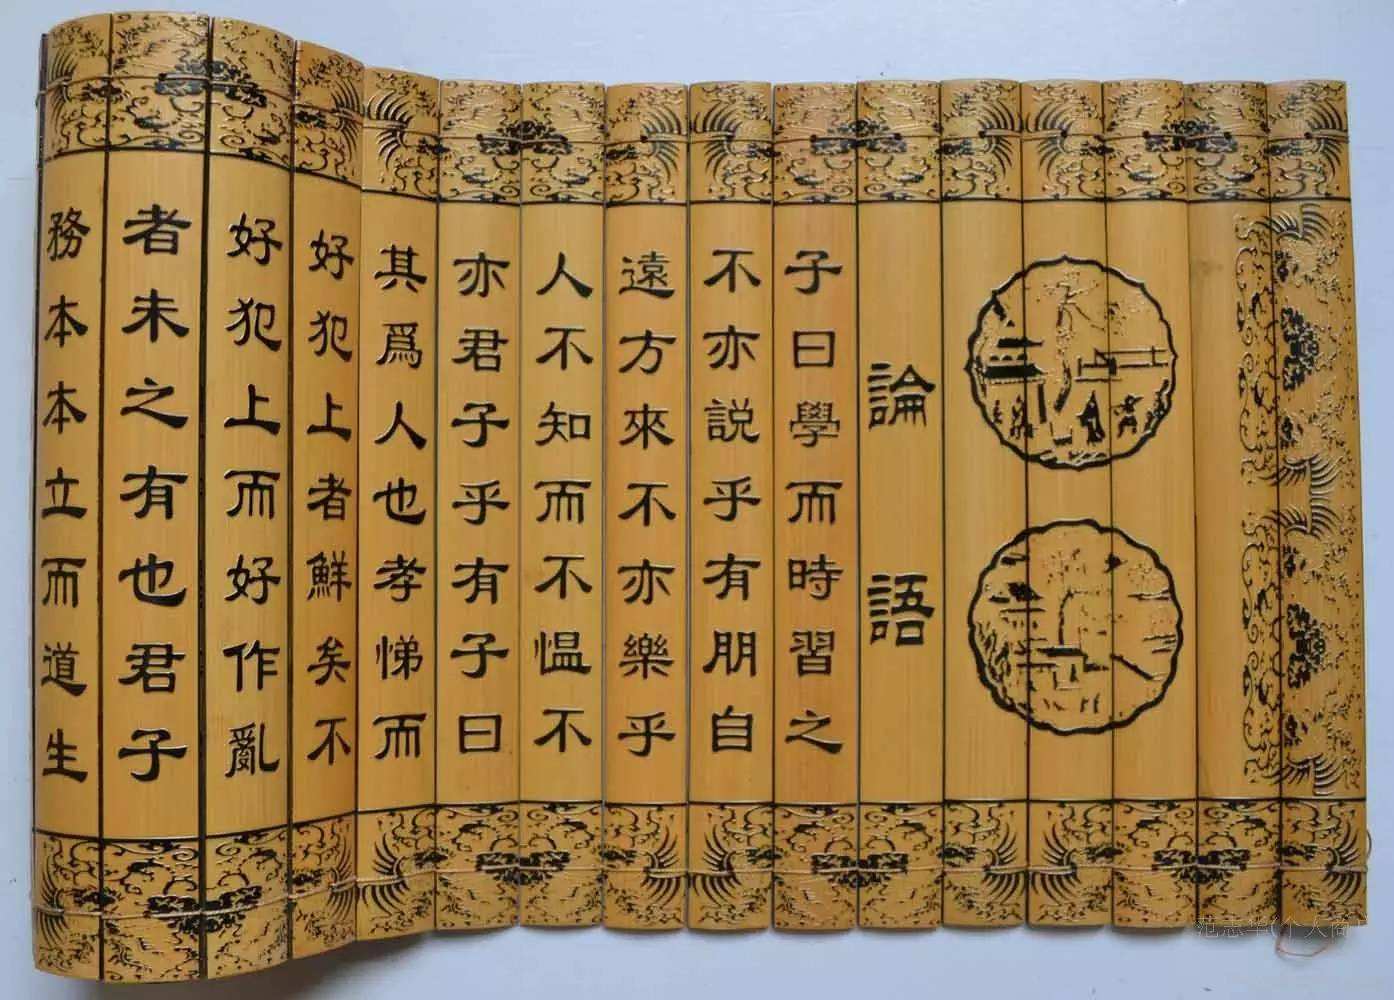 論語
子曰學而時習之
不亦説乎有朋自
遠方來不亦樂乎
人不知而不愠不
亦君子乎有子曰
其爲人也孝悌而
好犯上者鮮矣不
好犯上而好作亂
者未之有也君子
務本本立而道生
范志华(个人商)